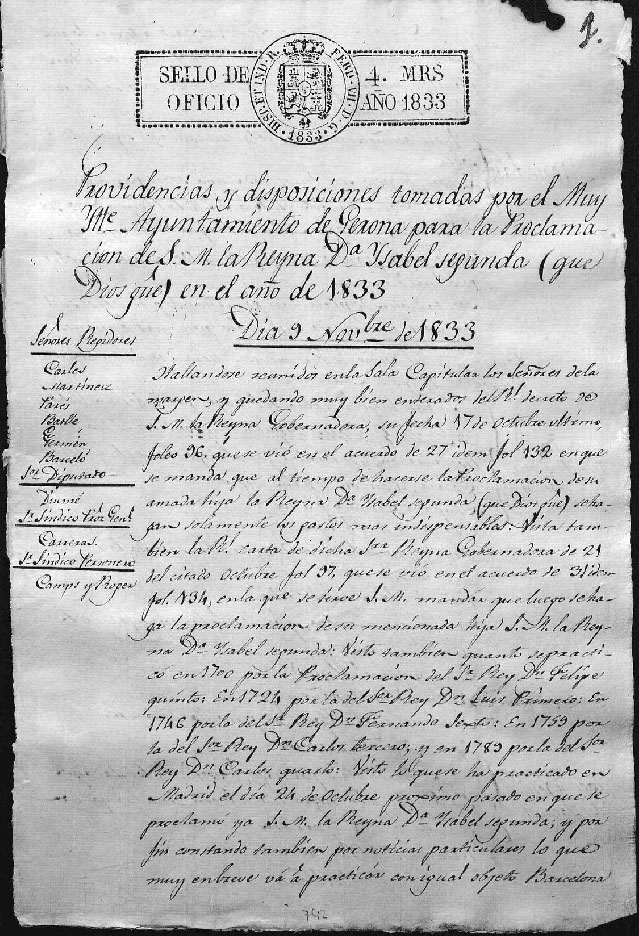 1.
SELLO DE OFICIO
HISP. ET IND. R. FERD. VII. D. G. 1833
4. MRS AÑO 1833
Providencias, y disposiciones tomadas por el Muy
Ytte Ayuntamiento de Gerona para la Proclama-
cion de S. M. la Reyna Da Ysabel segunda (que
Dios gûe) en el año de 1833
Dia 9 Novbre de 1833
Señores Regidores
Carles
Martinez
Pares
Batlle
Germen
Bauclò
Sor Diputado
Sor Sindico Pror Genl
Carreras
Sor Sindico Personero
Camps y Roger
Hallandose reunidos en la Sala Capitular los Señores de la
margen, y quedando muy bien enterados del Rl decreto de
S. M. la Reyna Gobernadora, su fecha 17 de Octubre ultimo,
foleo 96, que se vió en el acuerdo de 27 idem fol 132 en que
se manda, que al tiempo de hacerse la Proclamacion de su
amada hija la Reyna Da Ysabel segunda (que Dios gûe) se ha-
gan solamente los gastos mas indispensables: Vista tam-
bien la Rl carta de dicha Sra Reyna Gobernadora de 21
del citado Octubre fol 97, que se vió en el acuerdo de 31 idem
fol. 134, en la que se sirve S. M. mandar que luego se ha-
ga la proclamacion de su mencionada hija S. M. la Rey-
na Da Ysabel segunda: Visto tambien quant se practi-
có en 1700 por la Proclamacion del Sor Rey Dn Felipe
quinto: En 1724 por la del Sor Rey Dn Luis Primero: En
1746 por la del Sor Rey Dn Fernando Sexto: En 1759 por
la del Sor Rey Dn Carlos tercero; y en 1789 por la del Sor
Rey Dn Carlos quarto: Visto lo que se ha practicado en
Madrid el dia 24 de Octubre proximo pasado en que se
proclamó ya S. M. la Reyna Da Ysabel segunda; y por
fin constando tambien por noticias particulares lo que
muy en breve vá á practicar con igual objeto Barcelona